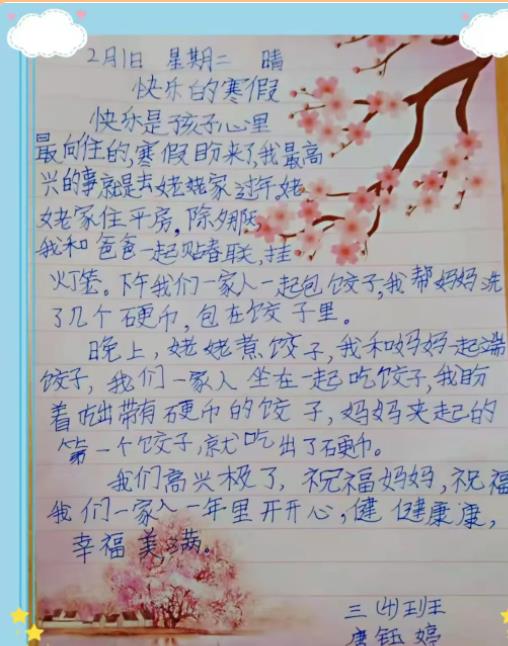 2月1日 星期二 晴
快乐的寒假
快乐是孩子心里
最向往的,寒假盼来了,我最高
兴的事就是去姥姥家过年,姥
姥家住平房,除夕那天,
我和爸爸一起贴春联,挂
灯笼。下午我们一家人一起包饺子,我帮妈妈洗
了几个硬币,包在饺子里。
晚上,姥姥煮饺子,我和妈妈一起端
饺子,我们一家人坐在一起吃饺子,我盼
着吃出带有硬币的饺子,妈妈夹起的
第一个饺子,就吃出了硬币。
我们高兴极了,祝福妈妈,祝福
我们一家人一年里开开心,健健康康,
幸福美满。
三(4)班
唐钰婷